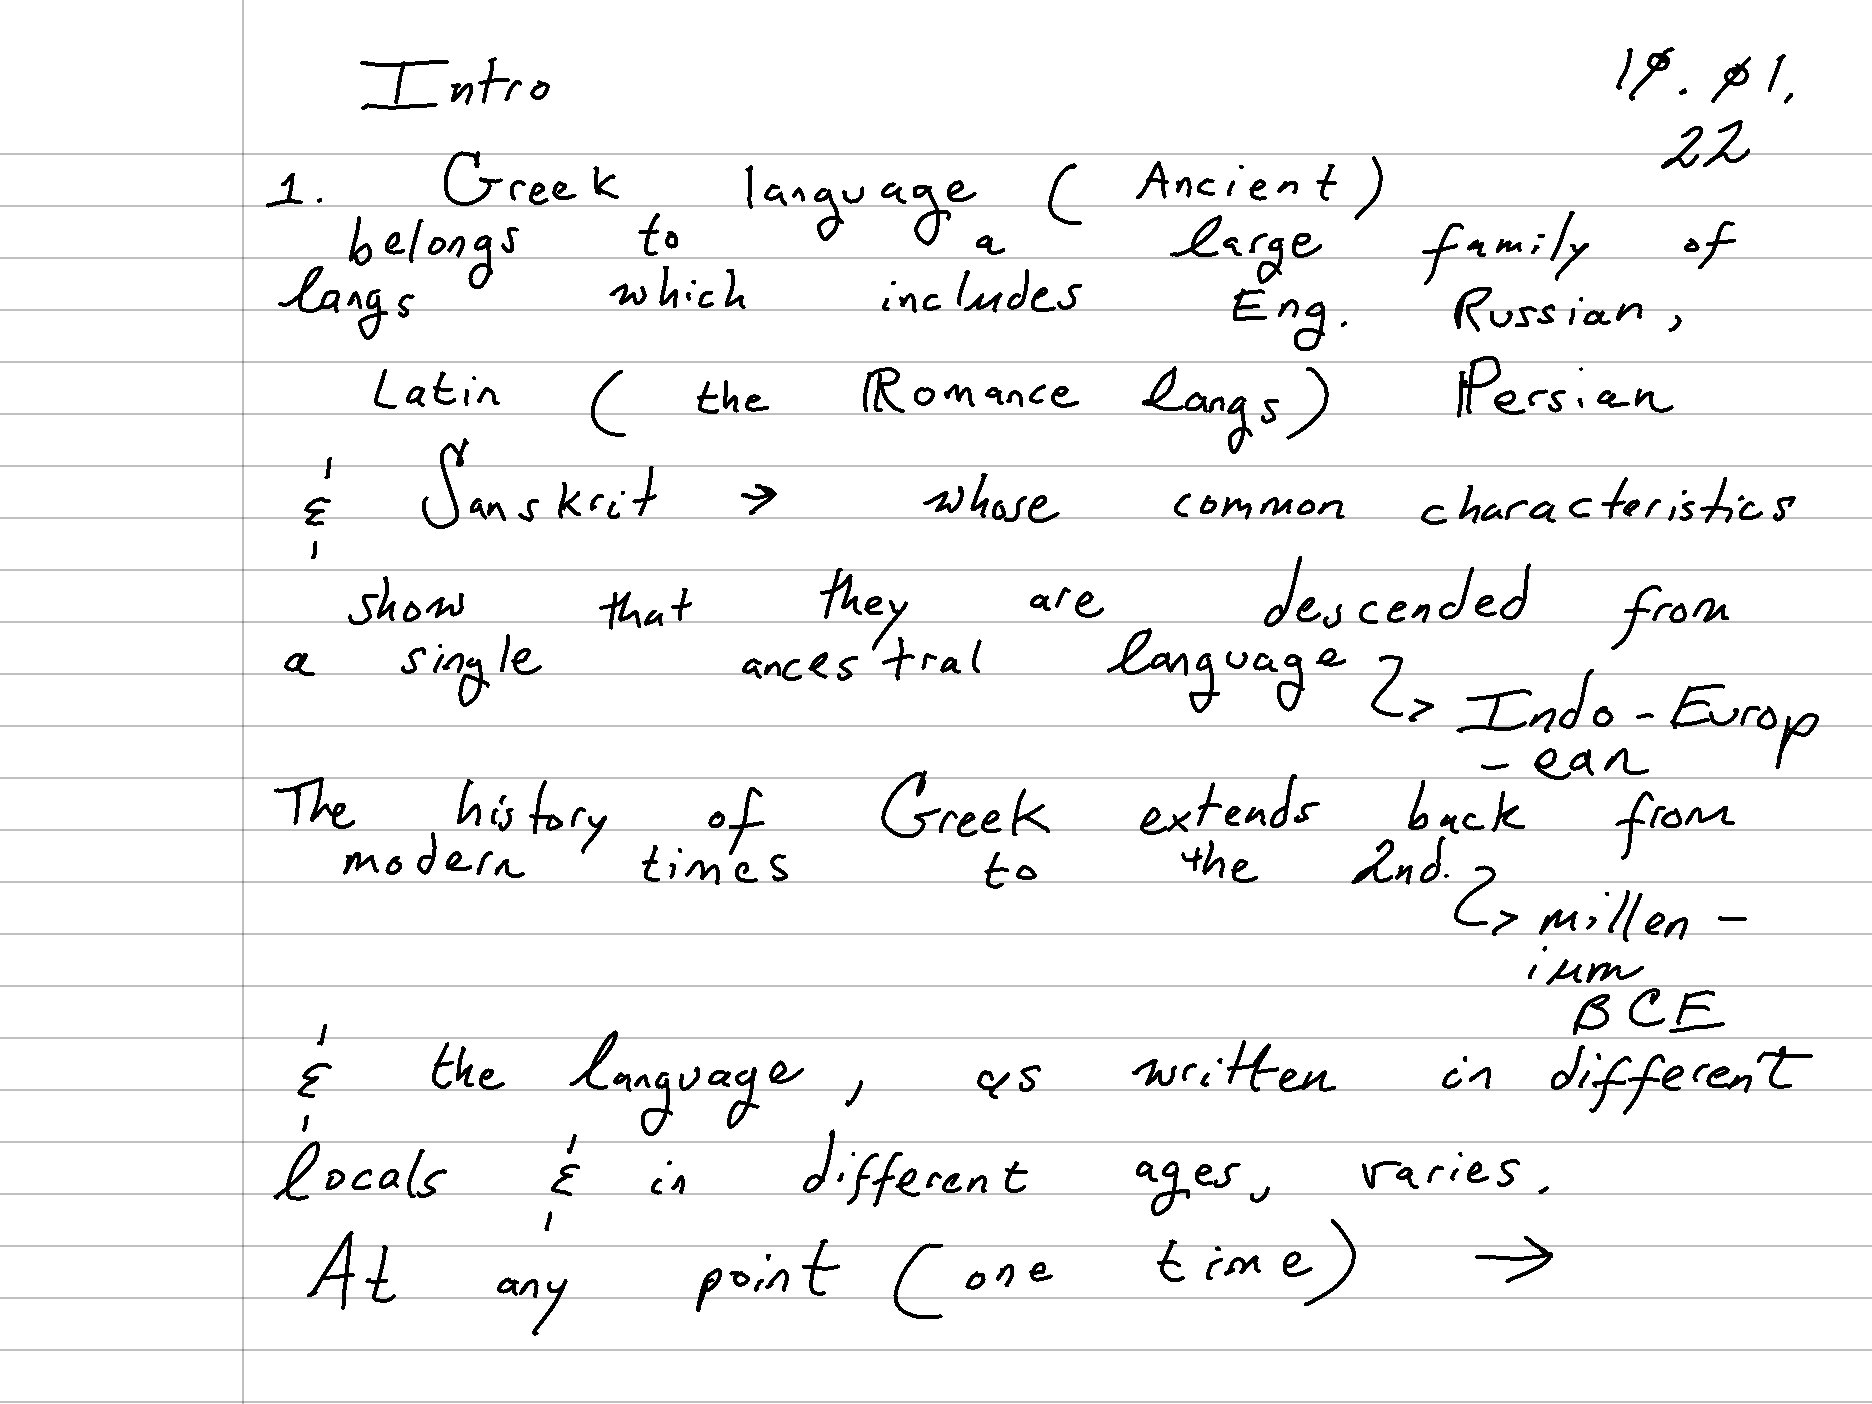 Intro
10.01.
22
1. Greek language (Ancient)
belongs to a large family of
langs which includes Eng. Russian,
Latin (the Romance langs) Persian
& Sanskrit → whose common characteristics
show that they are descended from
a single ancestral language
↳ Indo-Europ
-ean
The history of Greek extends back from
modern times to the 2nd.
↳ millen-
ium
BCE
& the language, as written in different
locals & in different ages, varies.
At any point (one time) →